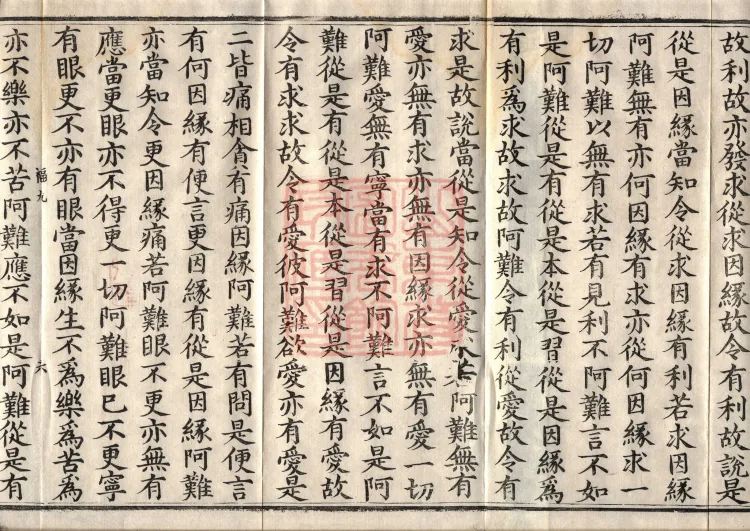 故利故亦發求從求因緣故令有利故說是
從是因緣當知令從求因緣有利若求因緣
阿難無有亦何因緣有求亦從何因緣求一
切阿難以無有求若有見利不阿難言不如
是阿難從是有從是本從是習從是因緣爲
有利爲求故求故阿難令有利從愛故令有
求是故說當從是知令從愛求若阿難無有
愛亦無有求亦無有因緣求亦無有愛一切
阿難愛無有寧當有求不阿難言不如是阿
難從是有從是本從是習從是因緣有愛故
令有求求故令有愛彼阿難欲愛亦有愛是
二皆痛相會有痛因緣阿難若有問是便言
有何因緣有便言更因緣有從是因緣阿難
亦當知令更因緣痛若阿難眼不更亦無有
應當更眼亦不得更一切阿難眼已不更寧
有眼更不亦有眼當因緣生不爲樂爲苦爲
福九
六
亦不樂亦不苦阿難應不如是阿難從是有